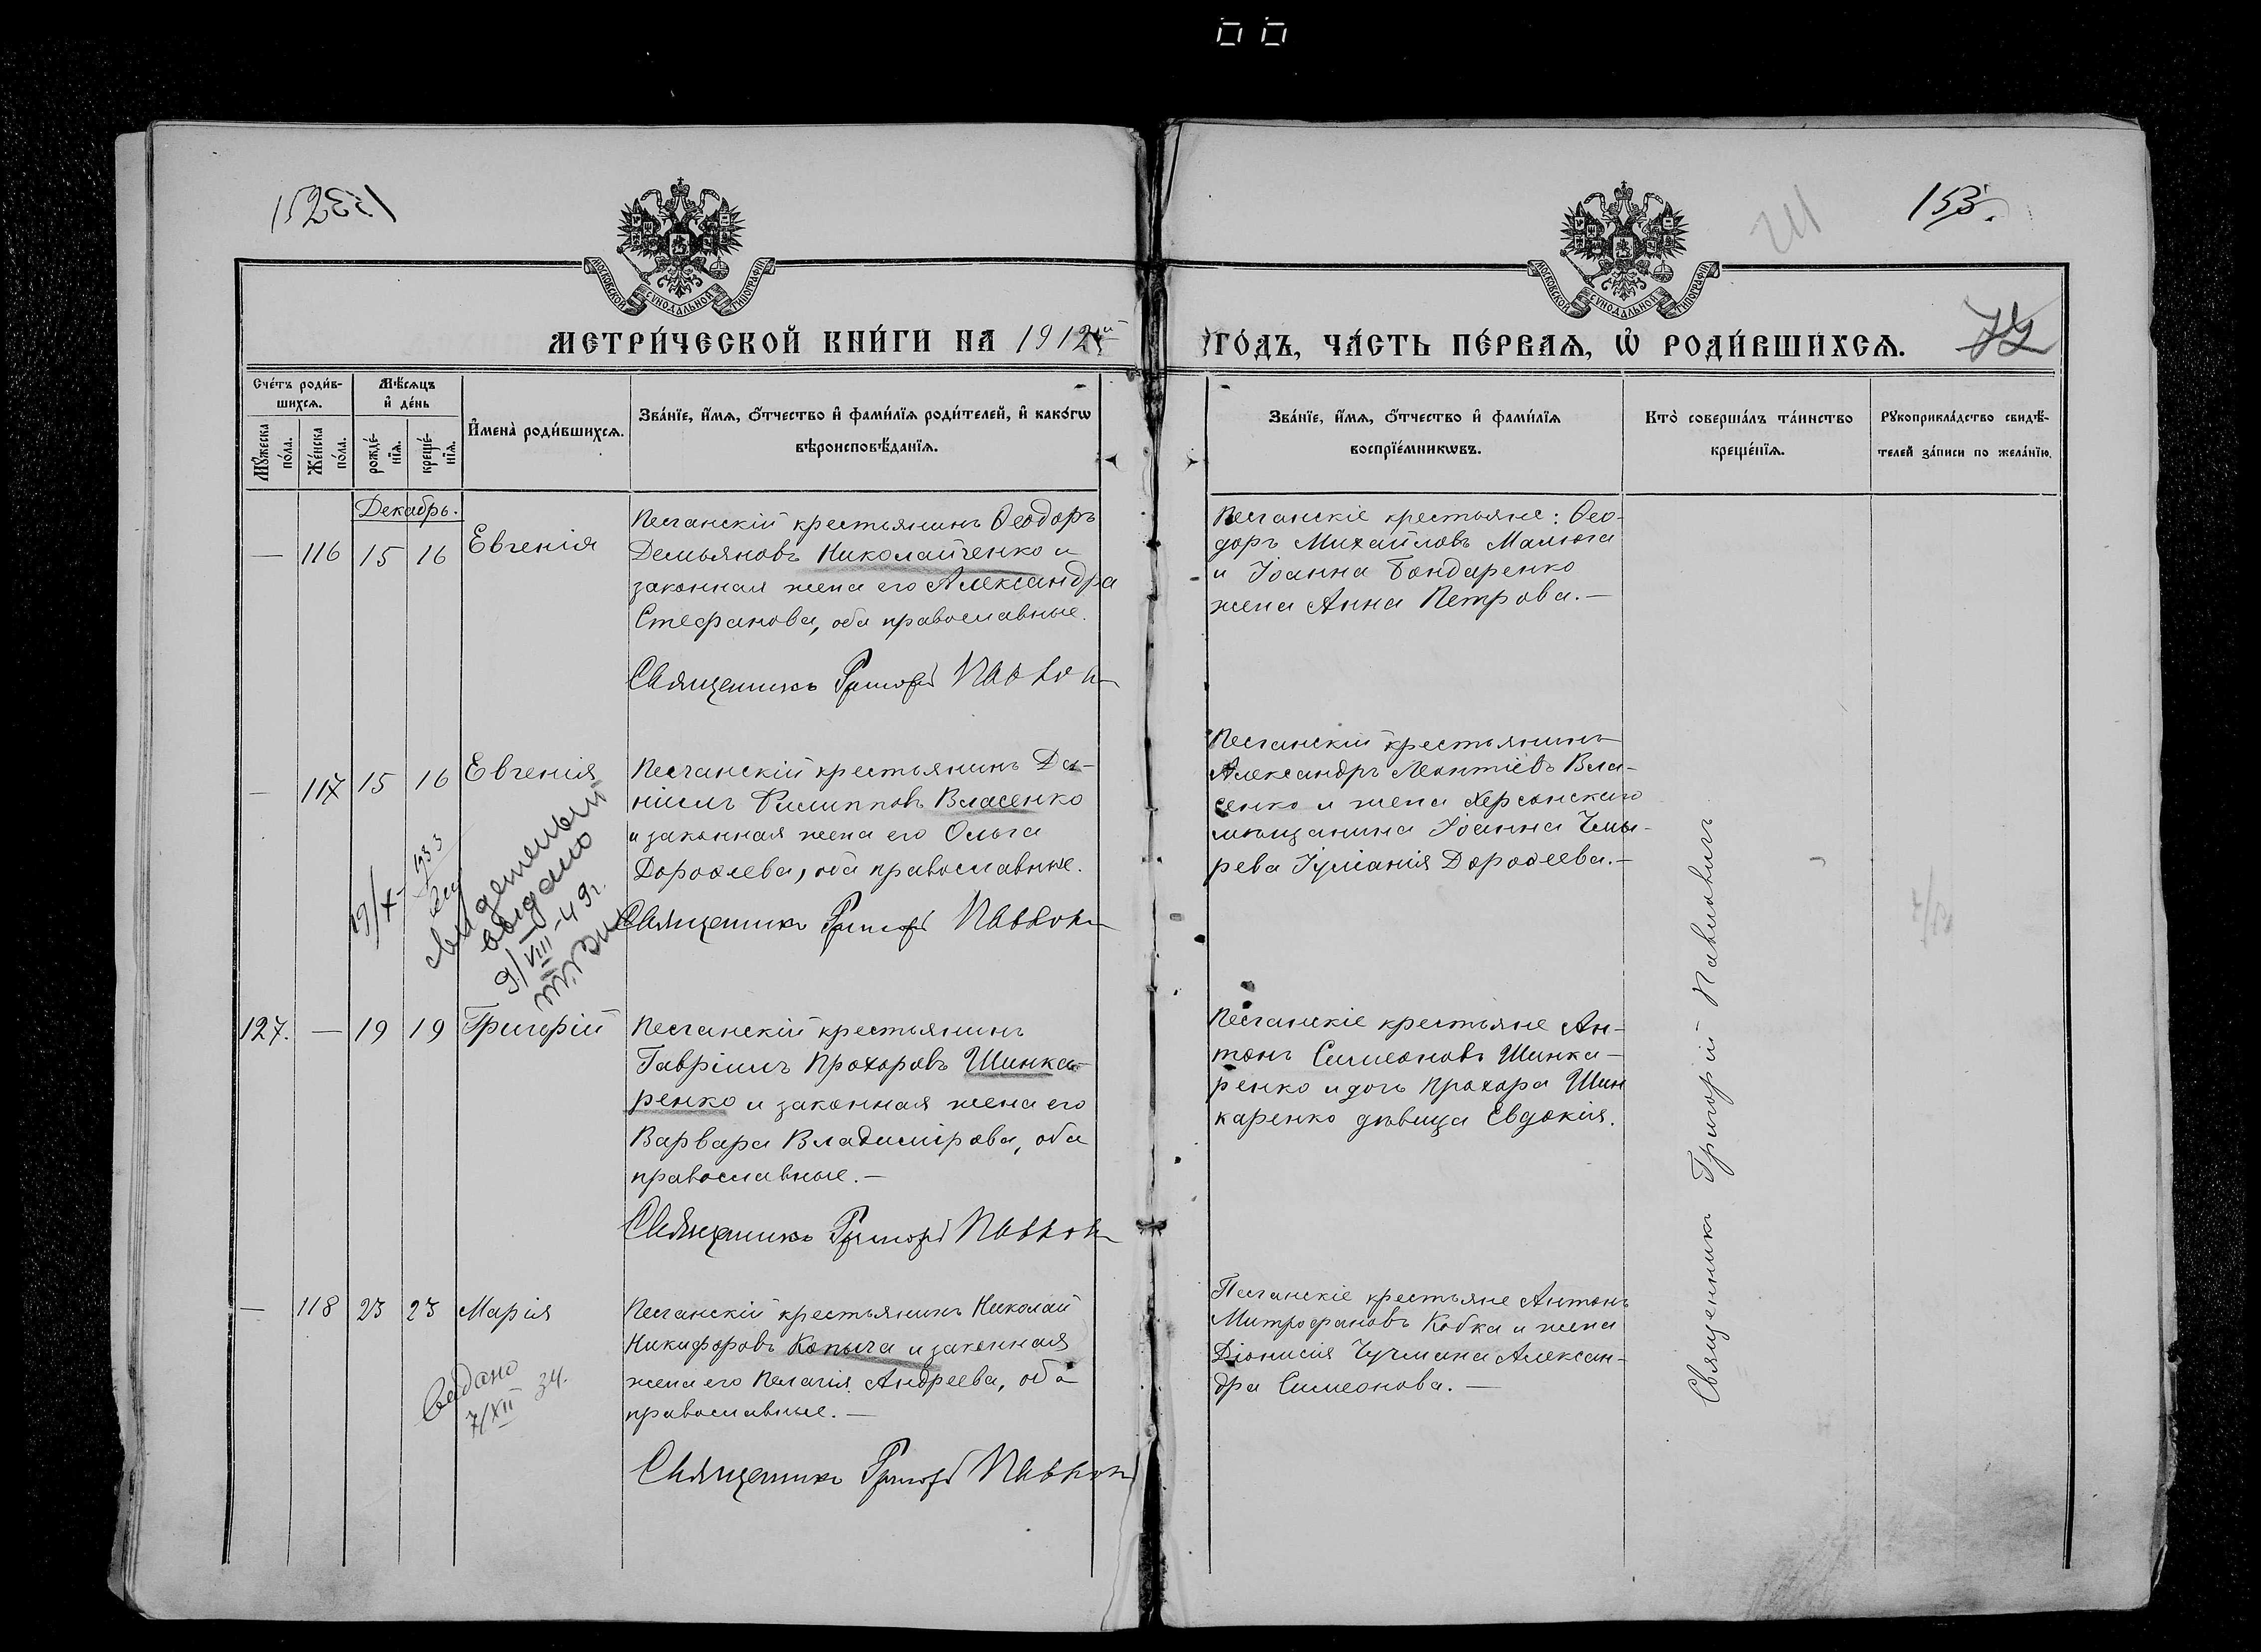 152
153.
МОСКОВСКОЙ СѴНОДАЛЬНОЙ ТИПОГРАФІИ
МОСКОВСКОЙ СѴНОДАЛЬНОЙ ТИПОГРАФІИ
МЕТРИ́ЧЕСКОЙ КНИ́ГИ НА 1912й
ГО́ДЪ, ЧА́СТЬ ПЕ́РВАѦ, Ѡ҆ РОДИ́ВШИХСѦ.
Сче́тъ роди́в-
шихсѧ.
Мꙋ́жеска
по́ла.
Же́нска
по́ла.
Мѣ́сѧцъ
и҆ де́нь
рожде́-
нїѧ.
креще́-
нїѧ.
И҆мена̀ роди́вшихсѧ.
Зва́нїе, и҆́мѧ, ѻ҆́тчество и҆ фами́лїѧ роди́телей, и҆ како́гѡ
вѣроисповѣ́данїѧ.
Зва́нїе, и҆́мѧ, ѻ҆́тчество и҆ фами́лїѧ
воспрїе́мникѡвъ.
Кто̀ соверша́лъ та́инство
креще́нїѧ.
Рꙋкоприкла́дство свидѣ́-
телей за́писи по жела́нїю.
Декабрь.
— 116 15 16 Евгенія
Песчанскій крестьянинъ Ѳеодоръ
Демьяновъ Николайченко и
законная жена его Александра
Стефанова, оба православные.
Священникъ Григорій Павлови
Песчанскіе крестьяне: Ѳео-
доръ Михайловъ Малюга
и Іоанна Бондаренко
жена Анна Петрова.—
— 117 15 16 Евгенія
Песчанскій крестьянинъ Да-
ніилъ Филипповъ Власенко
и законная жена его Ольга
Дороѳеева, оба православные.
Священникъ Григорій Павлови
Песчанскій крестьянинъ
Александръ Леонтіевъ Вла-
сенко и жена Херсонскаго
мѣщанина Іоанна Чмы-
рева Іуліанія Дороѳеева.—
19/X- 1933
свидетельство
выдано
9/VIII-49г.
127. — 19 19 Григорій
Песчанскій крестьянинъ
Гавріилъ Прохоровъ Шинка-
ренко и законная жена его
Варвара Владимірова, оба
православные.—
Священникъ Григорій Павлови
Песчанскіе крестьяне Ан-
тонъ Симеоновъ Шинка-
ренко и дочь Прохора Шин
каренко дѣвица Евдокія.
— 118 23 23 Марія
Песчанскій крестьянинъ Николай
Никифоровъ Копыча и законная
жена его Пелагія Андреева, оба
православные.—
Священникъ Григорій Павлови
Песчанскіе крестьяне Антонъ
Митрофановъ Кобка и жена
Діонисія Чучмана Алексан-
дра Симеонова.—
Выдано
7/XII 34.
Священникъ Григорій Павловичъ